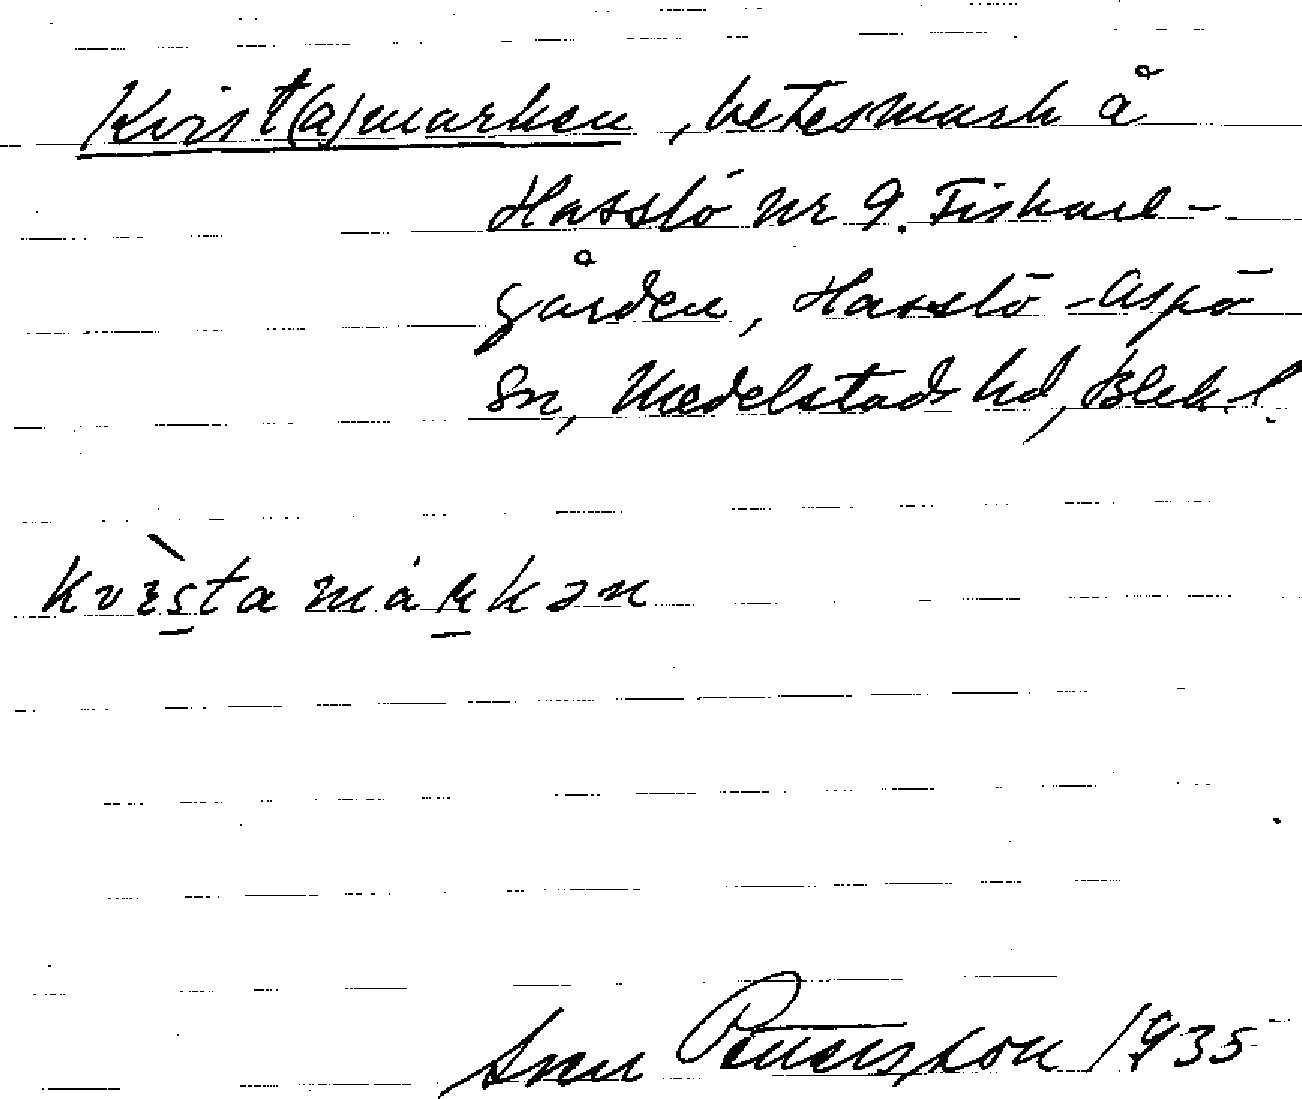 Kvist(a)marken, betesmark å
Hasslö nr 9. Fiskare-
gården, Hasslö-Aspö
sn, Medelstads hd, Blek. l.
kvista márkən
Sven Petersson 1935